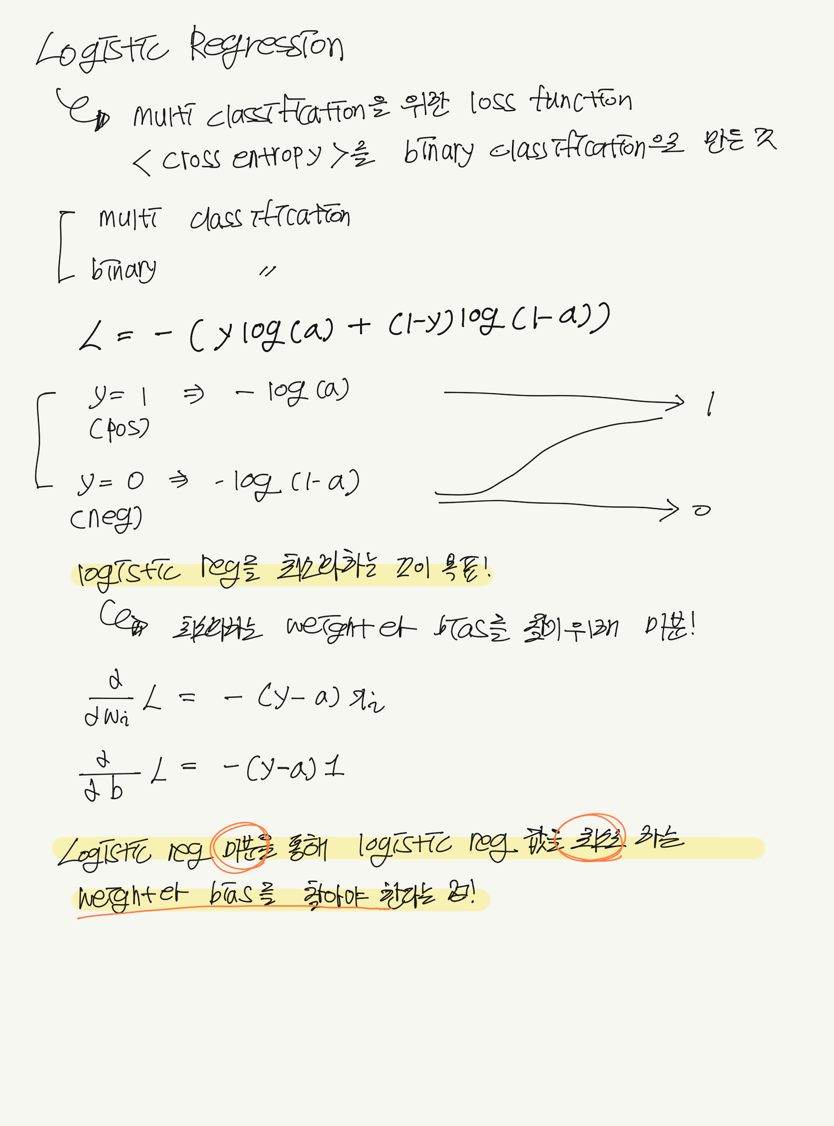 Logistic Regression
multi classification을 위한 loss function
<cross entropy>를 binary classification으로 만든 것
multi classification
binary 〃
L = - (y log(a) + (1-y) log (1-a))
y = 1 ⇒ - log (a)
1
(pos)
y = 0 ⇒ - log (1-a)
(neg)
0
logistic reg를 최소화하는 것이 목표!
최소화하는 weight와 bias를 찾기 위해 미분!
d/dwi L = - (y-a) xi
d/db L = - (y-a) 1
Logistic reg 미분을 통해 logistic reg 값을 최소로 하는
weight와 bias를 찾아야 한다는 점!